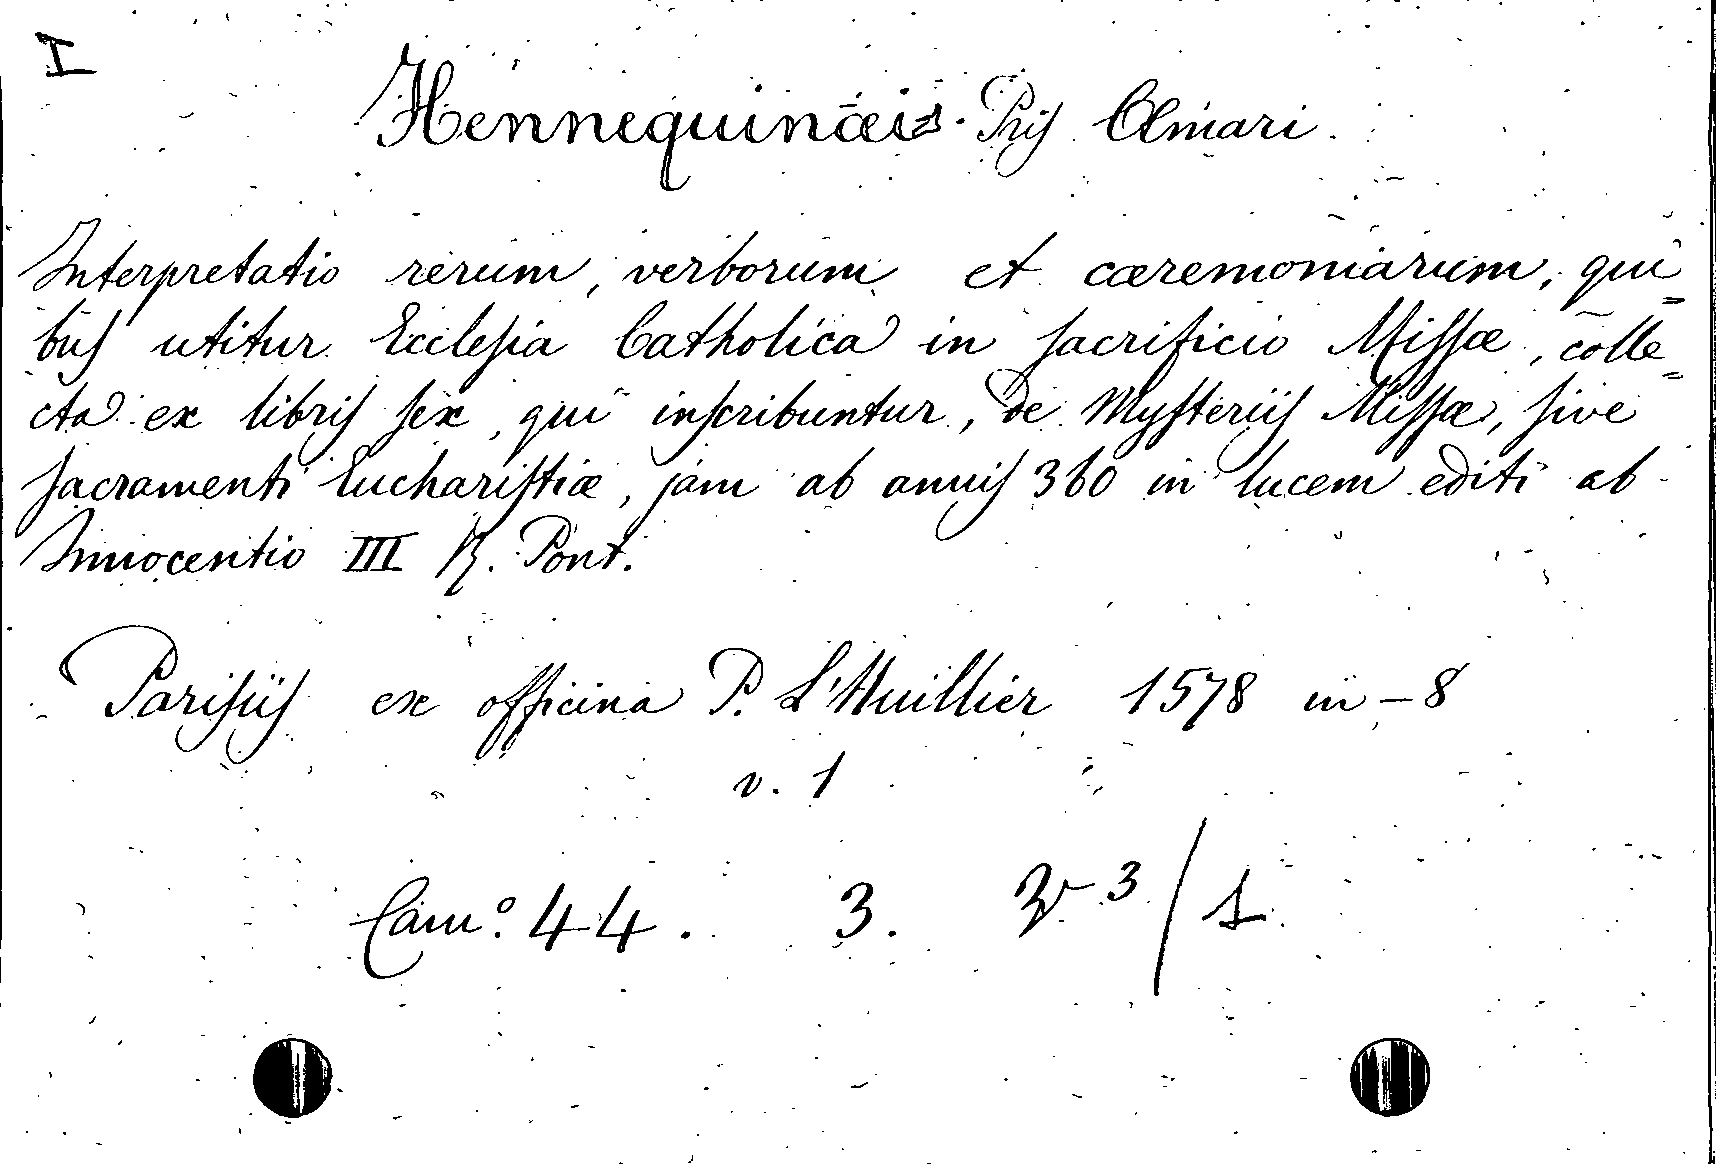 I
Hennequinæis. Pris Olmari.
Interpretatio rerum, verborum et cæremoniarum, qui=
buſ utitur Eccleſia Catholica in ſacrificio Miſſæ, colle=
cta ex libriſ ſex, qui inſcribuntur, de Myſteriiſ Miſſæ, ſive
ſacramenti Euchariſtiæ, jam ab anniſ 360 in lucem editi ab
Innocentio III R. Pont.
Pariſiiſ ex officina P. L'Huillier 1578 in-8
v. 1
Cam.º 44. 3. 3/1